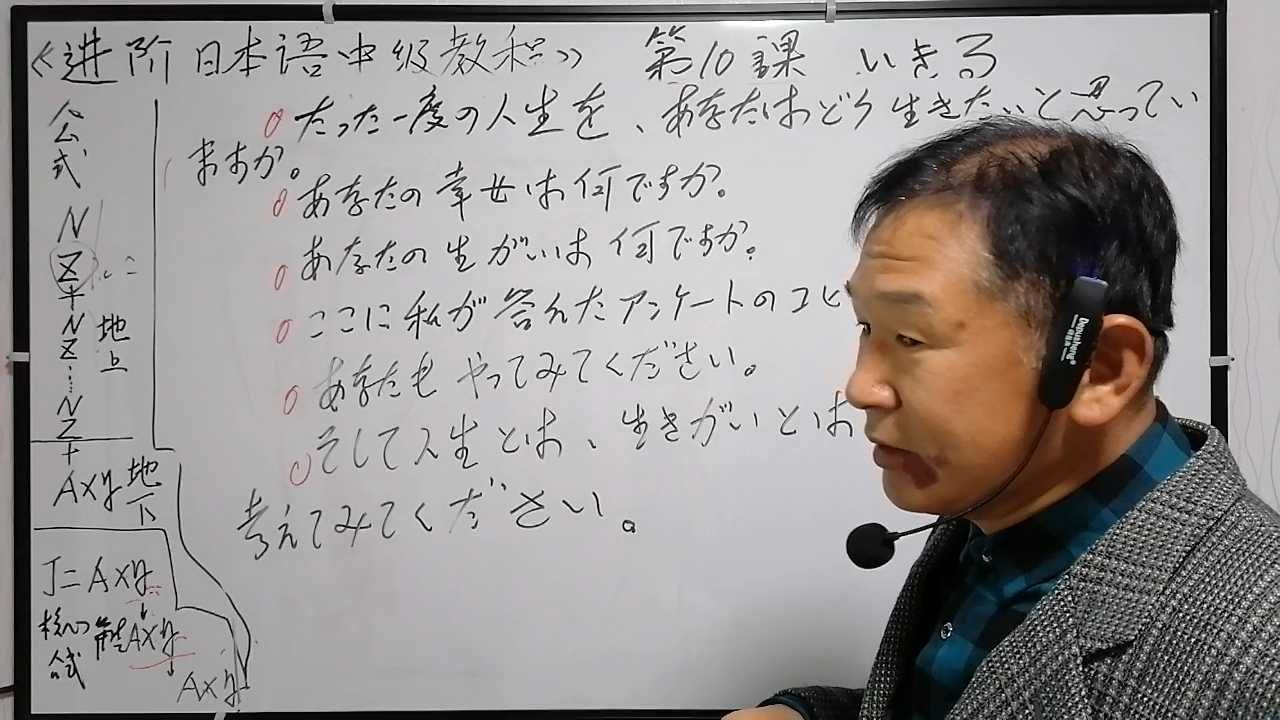 《进阶日本语中级教程》 第10課 いきる
たった一度の人生を、あなたはどう生きたいと思ってい
ますか。
あなたの幸せは何ですか。
あなたの生がいは何ですか。
ここに私が答えたアンケートのコピ
あなたもやってみてください。
そして人生とは、生きがいとは
考えてみてください。
公式
N
Z
+
N
Z
……
N
Z
+
地上
Axy
地下
J=Axy
核心
公式
Axy
Axy
Depusheng